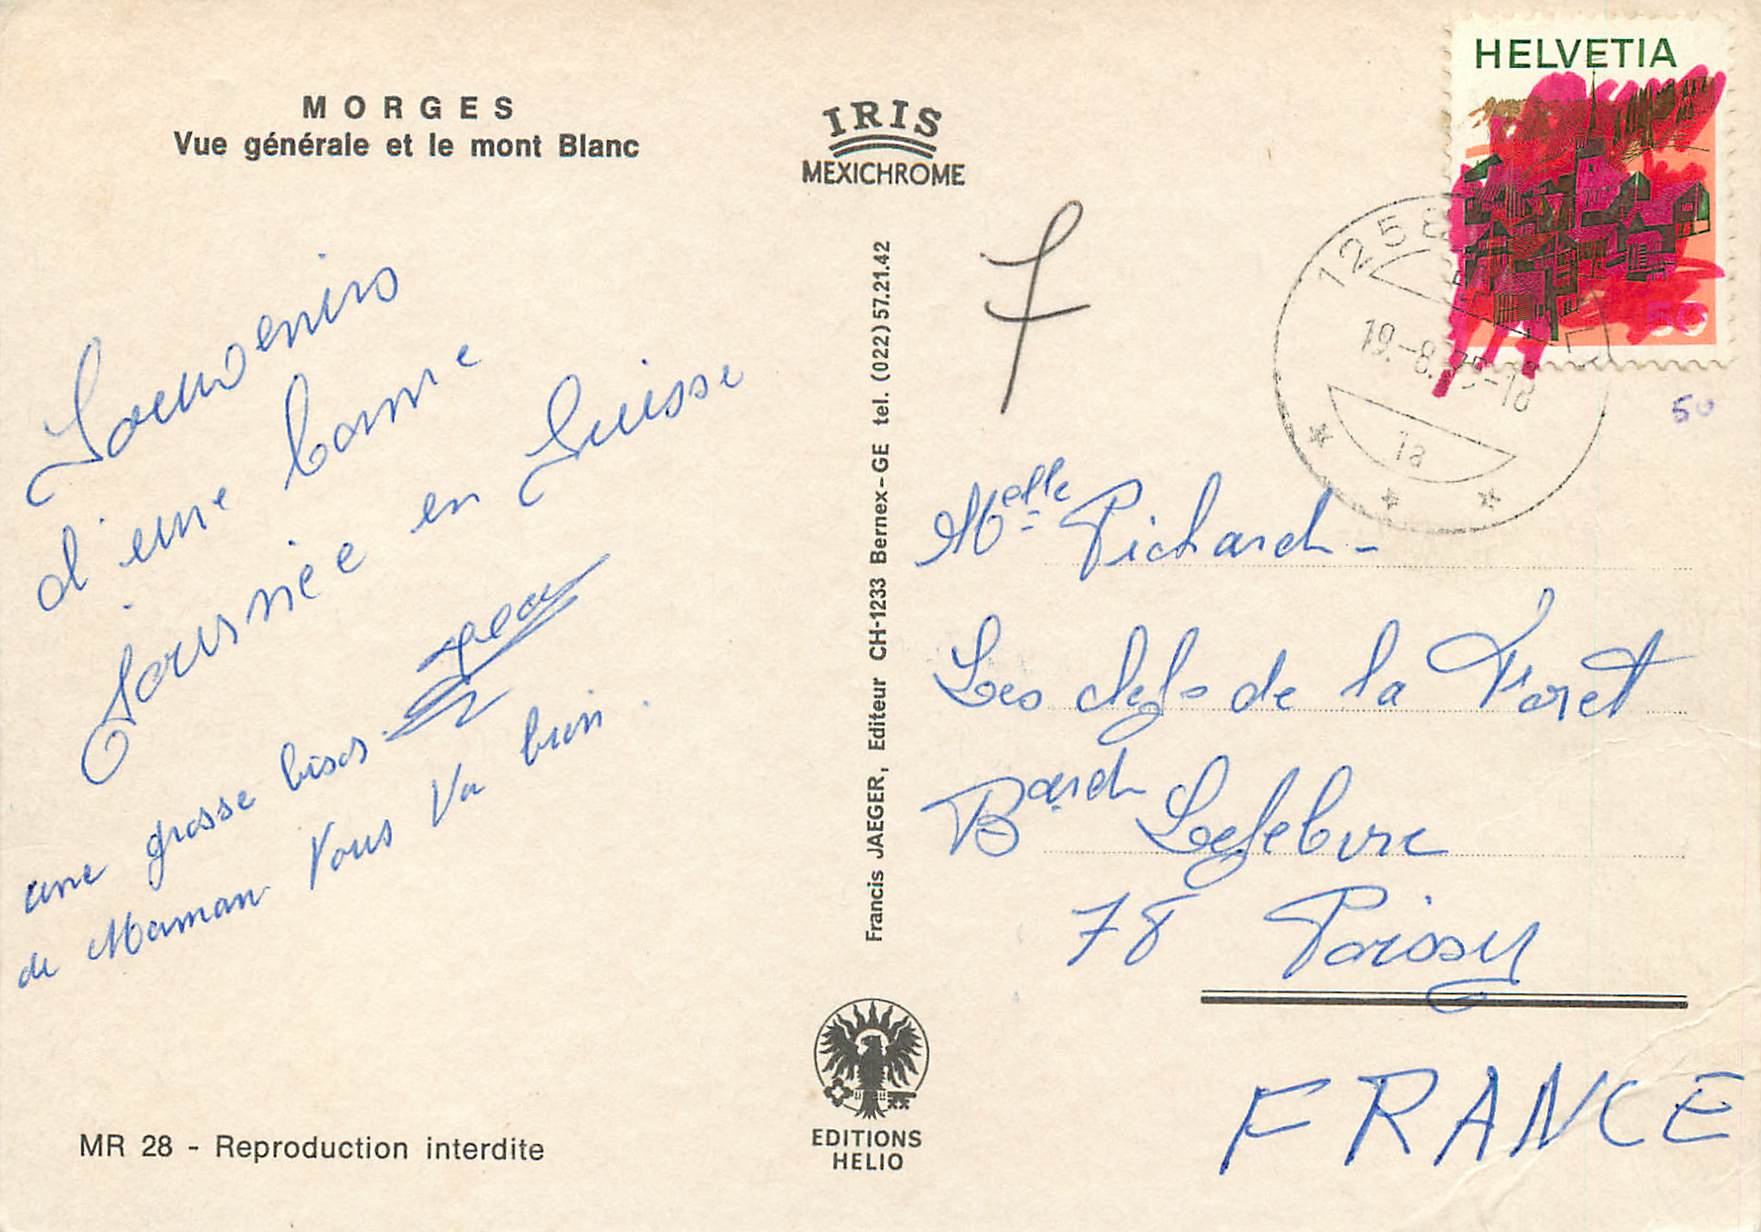 MORGES
Vue générale et le mont Blanc
IRIS
MEXICHROME
HELVETIA
50
1258
19.-8.75-18
1a
50
Souvenirs
d'une bonne
Journée en Suisse
une grosse bises
de Maman Vous Va bien.
Francis JAEGER, Editeur CH-1233 Bernex-GE tel. (022) 57.21.42
Melle Pichard -
Les clefs de la Foret
Bard Lefebvre
78 Poissy
FRANCE
EDITIONS
HELIO
MR 28 - Reproduction interdite